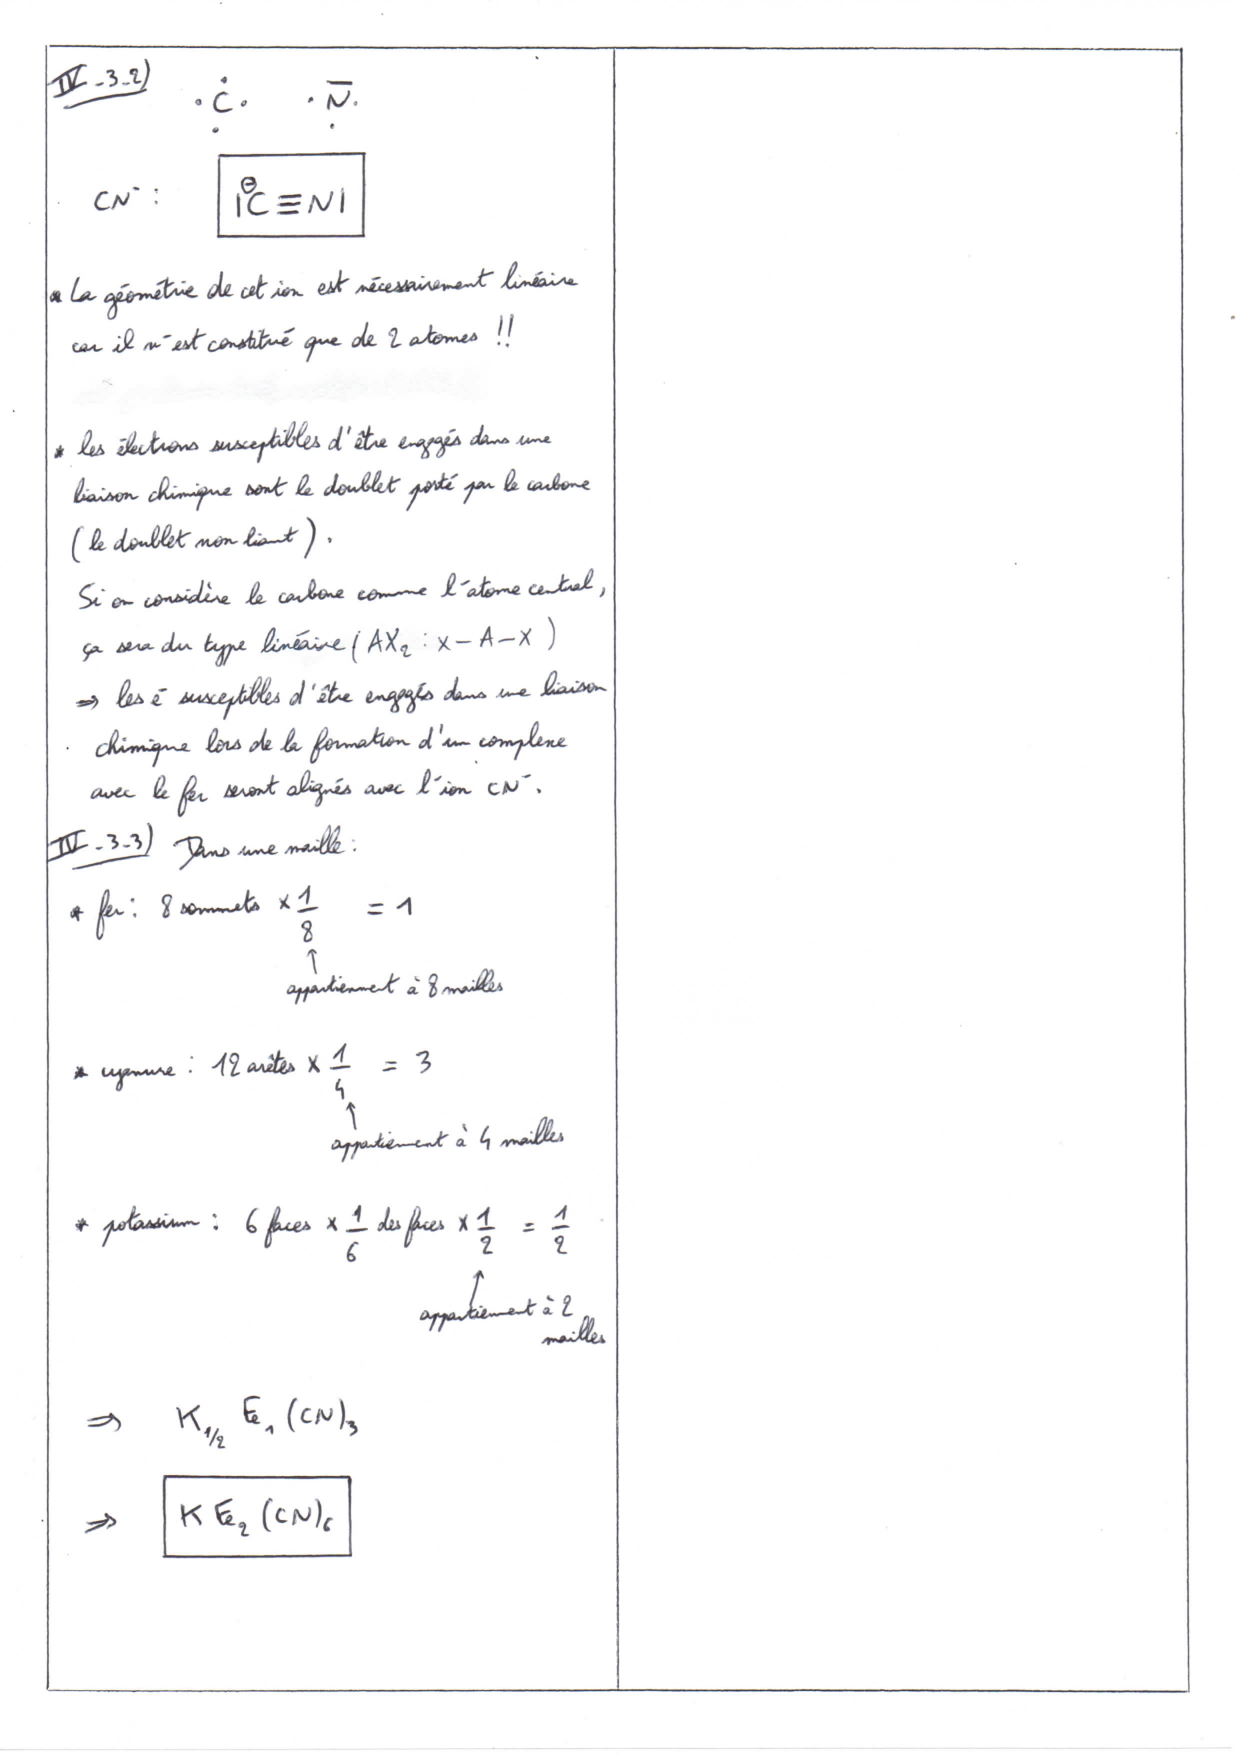 IV-3-2) ·C· ·N·
CN⁻ : |C≡N|
⊖
* La géométrie de cet ion est nécessairement linéaire
car il n'est constitué que de 2 atomes !!
* les électrons susceptibles d'être engagés dans une
liaison chimique sont le doublet porté par le carbone
(le doublet non liant).
Si on considère le carbone comme l'atome central,
ça sera du type linéaire (AX₂ : X-A-X)
⇒ les e⁻ susceptibles d'être engagés dans une liaison
chimique lors de la formation d'un complexe
avec le fer seront alignés avec l'ion CN⁻.
IV-3-3) Dans une maille :
* fer : 8 sommets × 1/8 = 1
↑
appartiennent à 8 mailles
* cyanure : 12 arêtes × 1/4 = 3
↑
appartiennent à 4 mailles
* potassium : 6 faces × 1/6 des faces × 1/2 = 1/2
↑
appartiennent à 2
mailles
⇒ K₁/₂ Fe₁ (CN)₃
⇒ K Fe₂ (CN)₆